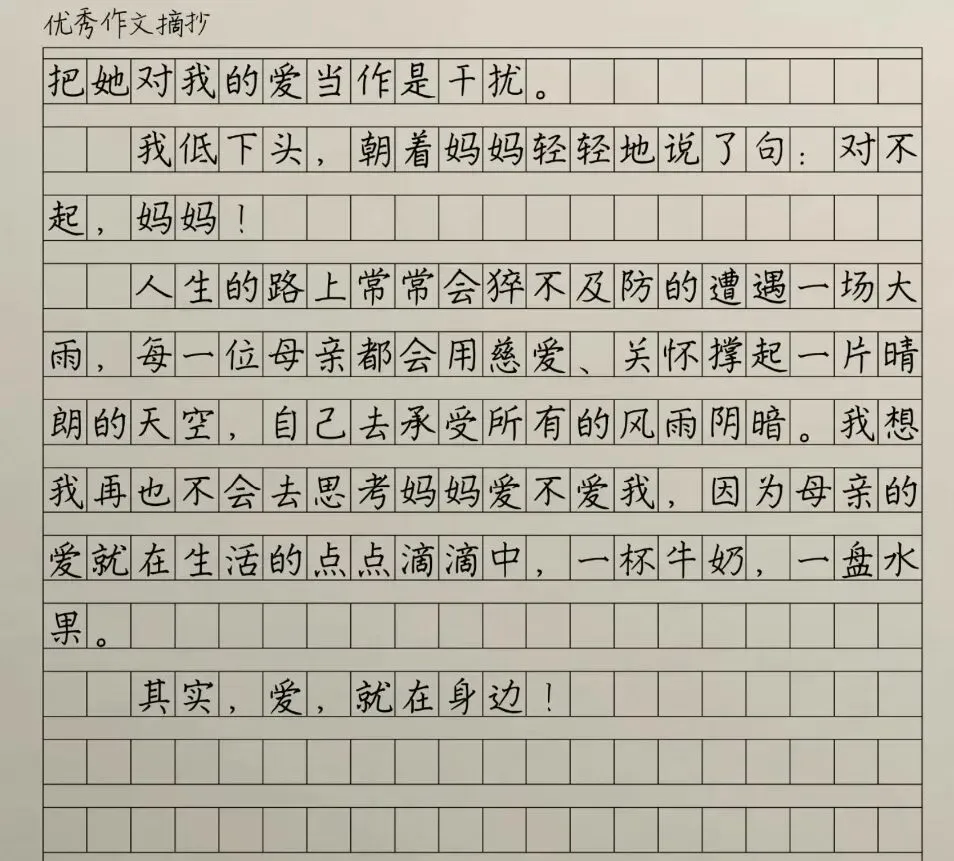 优秀作文摘抄
把她对我的爱当作是干扰。
我低下头，朝着妈妈轻轻地说了句：对不
起，妈妈！
人生的路上常常会猝不及防的遭遇一场大
雨，每一位母亲都会用慈爱、关怀撑起一片晴
朗的天空，自己去承受所有的风雨阴暗。我想
我再也不会去思考妈妈爱不爱我，因为母亲的
爱就在生活的点点滴滴中，一杯牛奶，一盘水
果。
其实，爱，就在身边！